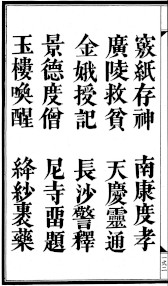 竅紙存神　南康度孝
廣陵救貧　天慶靈通
金娥授記　長沙警釋
景德度僧　尼寺畱題
玉樓喚醒　絳紗裹藥